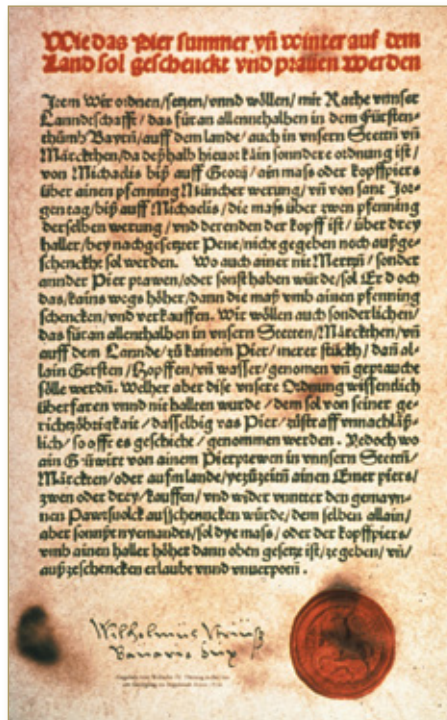 Wie das Pier summer vñ winter auf dem
Land sol geschenckt vnd prauen werden
Item Wir ordnen/setzen/vnnd wöllen/mit Rathe vnnser
Lanndtschafft/das für an allennthalben in dem Fürsten-
thůmb Bayrn/auff dem lande/auch in vnsern Stettñ vñ
Märckthen/da deßhalb hieuor kain sonndere ordnung ist/
von Michaelis biß auff Georij/ain mass oder kopffpiers
über ainen pfenning Müncher werung/vñ von sant Jor-
gentag/biß auff Michaelis/die mass über zwen pfenning
derselben werung/vnd derenden der kopff ist/über drey
haller/bey nachgesetzter Pene/nicht gegeben noch außge-
schenckht sol werden. Wo auch ainer nit Mertzñ/sonder
annder Pier prawen/oder sonst haben würde/sol Er doch
das/kains wegs höher/dann die maß vmb ainen pfenning
schencken/vnd verkauffen. Wir wöllen auch sonderlichen/
das für an allenthalben in vnsern Stetten/Märckthen/vñ
auff dem Lannde/zů kainem Pier/merer stückh/dañ al-
lain Gersten/Hopffen/vñ wasser/genomen vñ geprauche
sölle werdñ. Welher aber dise vnsere Ordnung wissentlich
überfaren vnnd nit hallten wurde/dem sol von seiner ge-
richtzöbrigkait/dasselbig vas Pier/zůstraff vnnachläß-
lich/so offt es geschicht/genommen werden. Yedoch wo
ain Gůwirt von ainem Pierprewen in vnnsern Stettñ/
Märckten/oder aufm lande/yezůzeitñ ainen Eimer piers/
zwen oder drey/kauffen/vnd wider vnnter den gemayn-
nen Pawrsuolck ausschenncken würde/dem selben allain/
aber sonnst nyemandes/sol dye mass/oder der kopffpiers/
vmb ainen haller höher dann oben gesetzt ist/ze geben/vñ/
außzeschencken erlaubt vnnd vnuerpotñ.
Wilhelmus